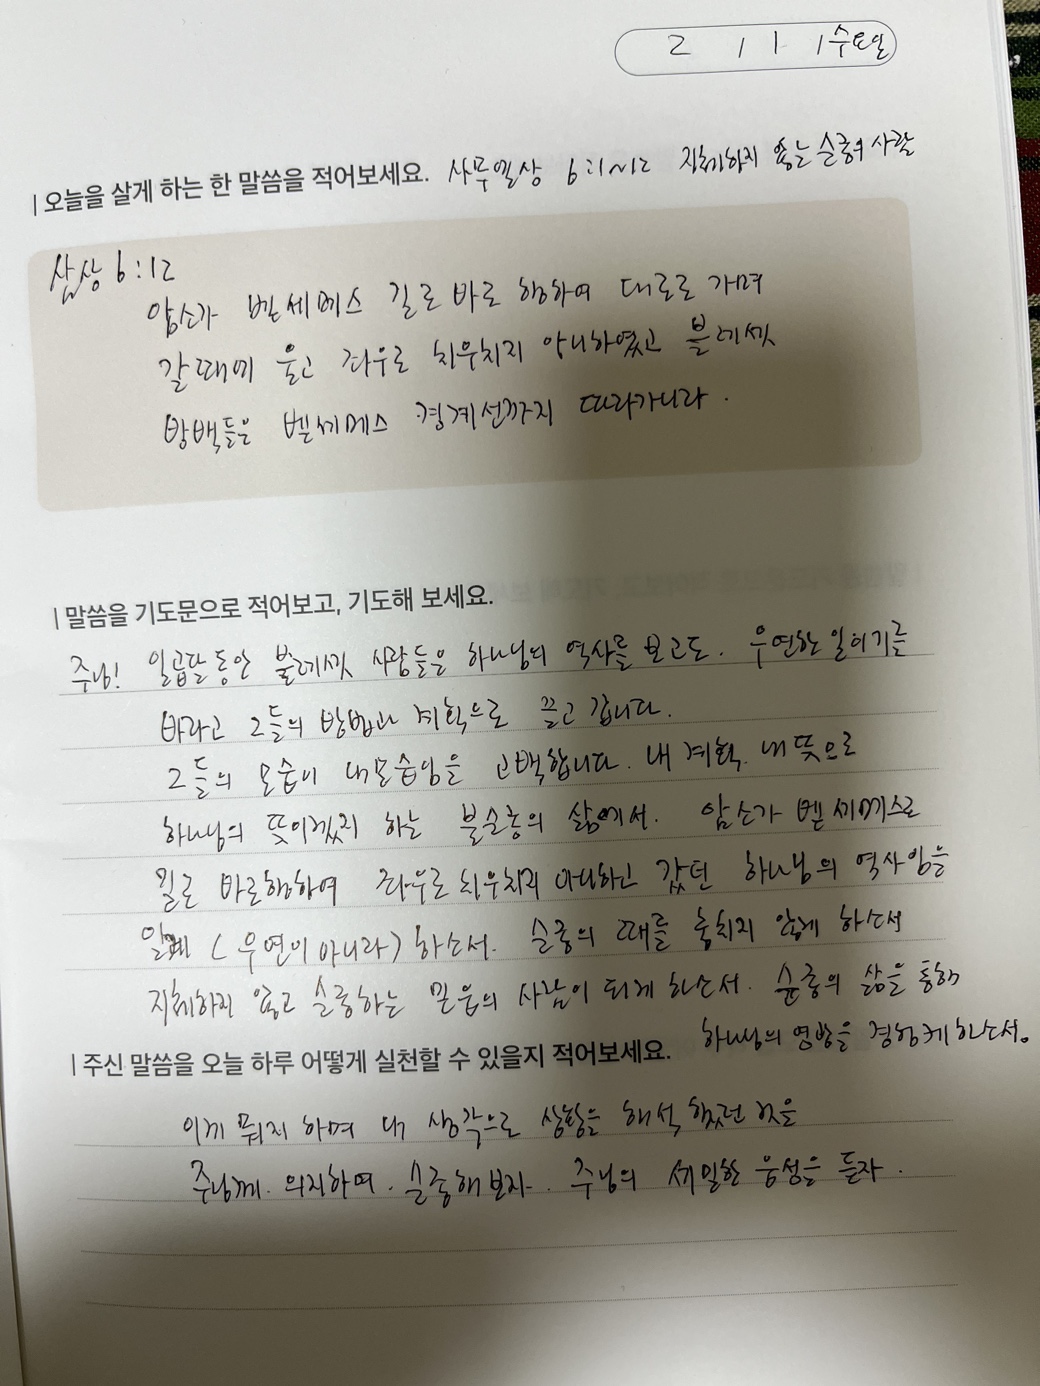 2 / 1 / 수요일
| 오늘을 살게 하는 한 말씀을 적어보세요. 사무엘상 6:1~12 지체하지 않는 순종의 사람
삼상 6:12
암소가 벧세메스 길로 바로 행하여 대로로 가며
갈 때에 울고 좌우로 치우치지 아니하였고 블레셋
방백들은 벧세메스 경계선까지 따라가니라.
| 말씀을 기도문으로 적어보고, 기도해 보세요.
주님! 일곱달 동안 블레셋 사람들은 하나님의 역사를 보고도. 우연한 일이기를
바라고 그들의 방법과 계획으로 끌고 갑니다.
그들의 모습이 내모습임을 고백합니다. 내 계획. 내 뜻으로
하나님의 뜻이겠지 하는 불순종의 삶에서. 암소가 벧세메스로
길로 바로행하여 좌우로 치우치지 아니하고 갔던 하나님의 역사임을
알게 (우연이 아니라) 하소서. 순종의 때를 놓치지 않게 하소서
지체하지 않고 순종하는 믿음의 사람이 되게 하소서. 순종의 삶을 통해
하나님의 영광을 경험케하소서.
| 주신 말씀을 오늘 하루 어떻게 실천할 수 있을지 적어보세요.
이게 뭐지 하며 내 생각으로 상황을 해석했던 것을
주님께. 의지하며. 순종해보자. 주님의 세밀한 음성을 듣자.